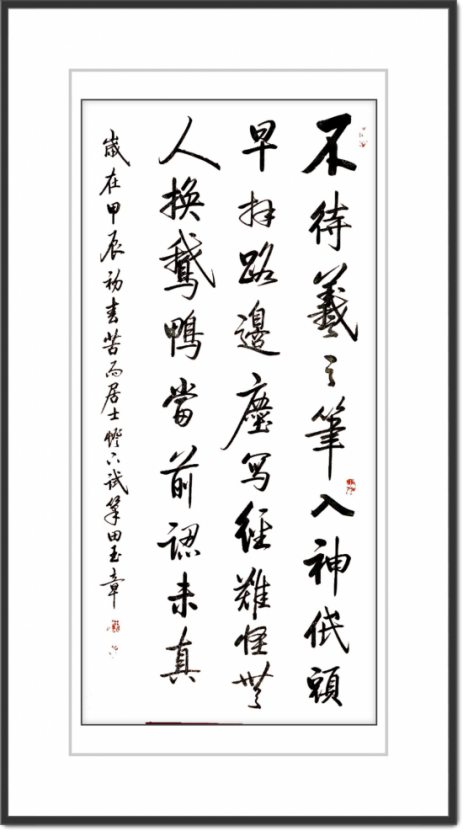 不待羲之筆入神低頭
早拜路邊塵寫經難怪無
人換鵝鴨當前認未真
歲在甲辰初春苦雨居士燈下試筆田玉章